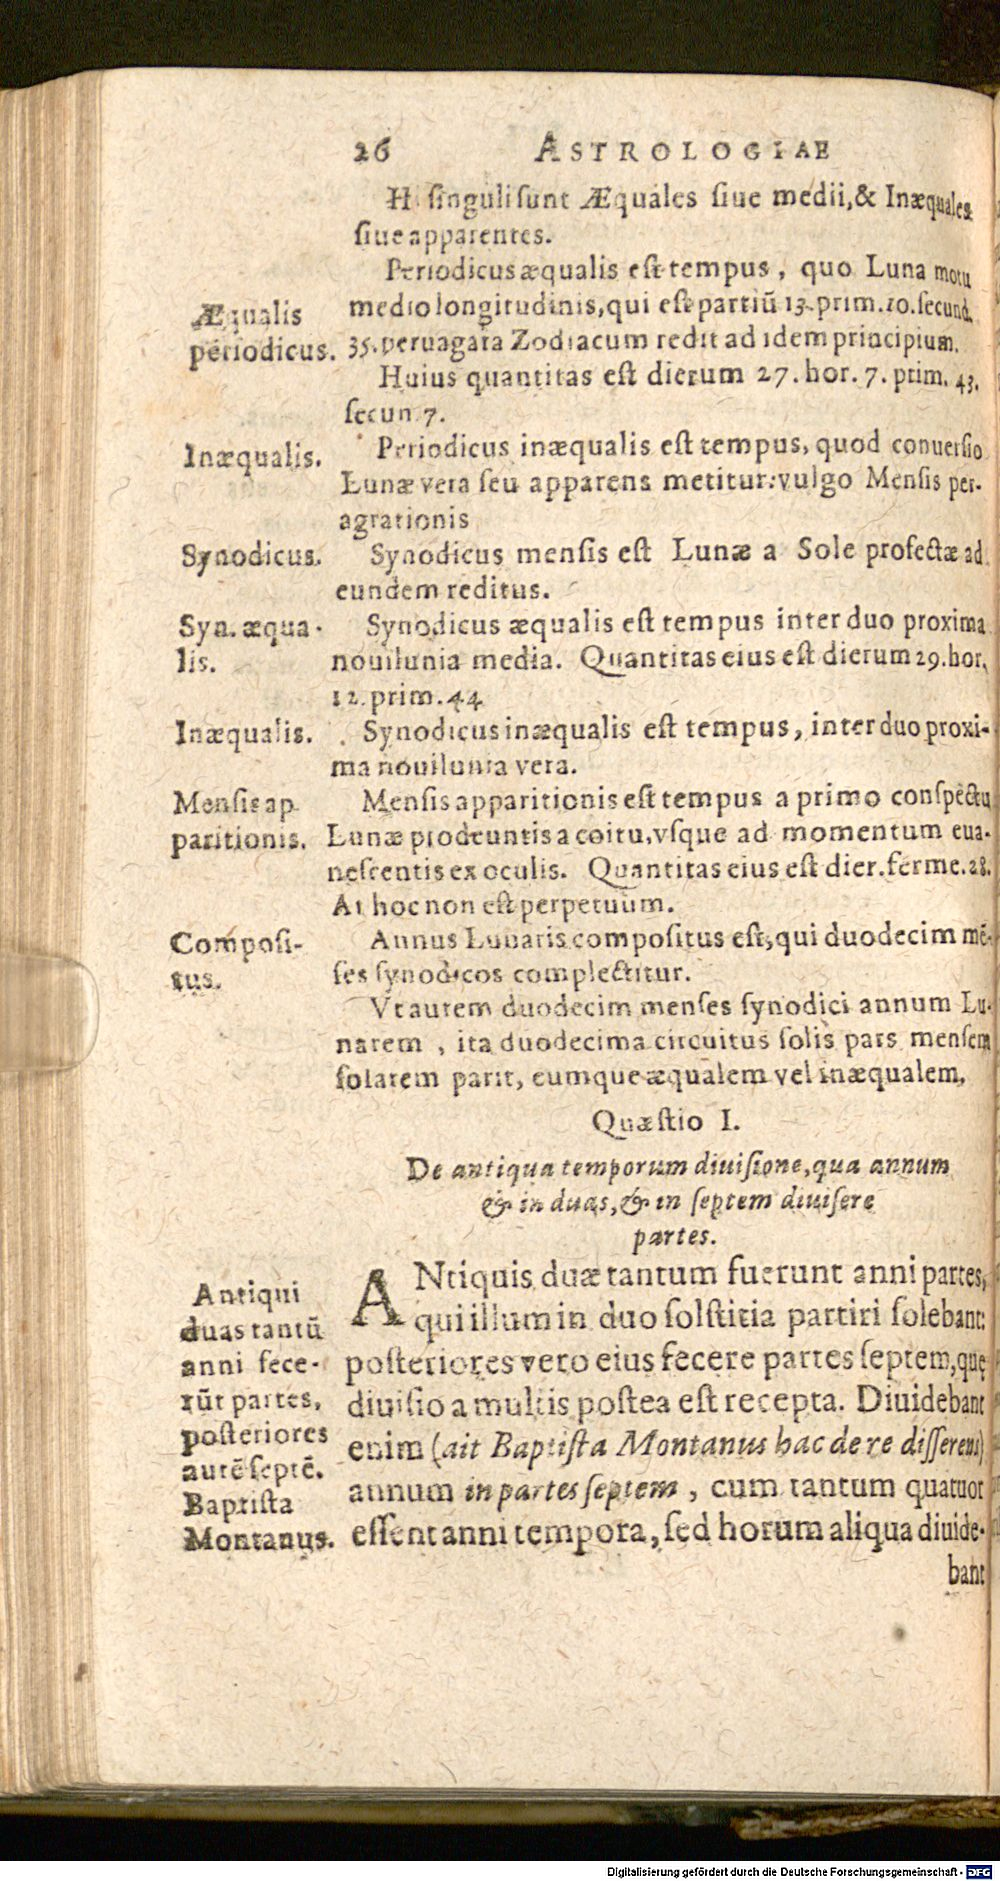 26 ASTROLOGIAE
Hi singuli sunt Æquales siue medii, & Inæquales
siue apparentes.
Periodicus æqualis est tempus, quo Luna motu
Æqualis
periodicus.
medio longitudinis, qui est partiũ 13. prim. 10. secund.
35. peruagata Zodiacum redit ad idem principium.
Huius quantitas est dierum 27. hor. 7. prim. 43.
secun 7.
Inæqualis.
Periodicus inæqualis est tempus, quod conuersio
Lunæ vera seu apparens metitur: vulgo Mensis per-
agrationis
Synodicus.
Synodicus mensis est Lunæ a Sole profectæ ad
eundem reditus.
Syn. æqua-
lis.
Synodicus æqualis est tempus inter duo proxima
nouilunia media. Quantitas eius est dierum 29. hor.
12. prim. 44
Inæqualis.
Synodicus inæqualis est tempus, inter duo proxi-
ma nouilunia vera.
Mensis ap
paritionis.
Mensis apparitionis est tempus a primo conspectu
Lunæ prodeuntis a coitu, vsque ad momentum eua-
nescentis ex oculis. Quantitas eius est dier. ferme. 28.
At hoc non est perpetuum.
Composi-
tus.
Annus Lunaris compositus est, qui duodecim mẽ-
ses synodicos complectitur.
Vt autem duodecim menses synodici annum Lu-
narem, ita duodecima circuitus solis pars mensem
solarem parit, eumque æqualem vel inæqualem.
Quæstio I.
De antiqua temporum diuisione, qua annum
& in duas, & in septem diuisere
partes.
Antiqui
duas tantũ
anni fece-
rũt partes,
posteriores
autẽ septẽ.
Baptista
Montanus.
ANtiquis duæ tantum fuerunt anni partes,
qui illum in duo solstitia partiri solebant:
posteriores vero eius fecere partes septem, quę
diuisio a multis postea est recepta. Diuidebant
enim (ait Baptista Montanus hac de re disserens)
annum in partes septem, cum tantum quatuor
essent anni tempora, sed horum aliqua diuide-
bant
Digitalisierung gefördert durch die Deutsche Forschungsgemeinschaft - DFG